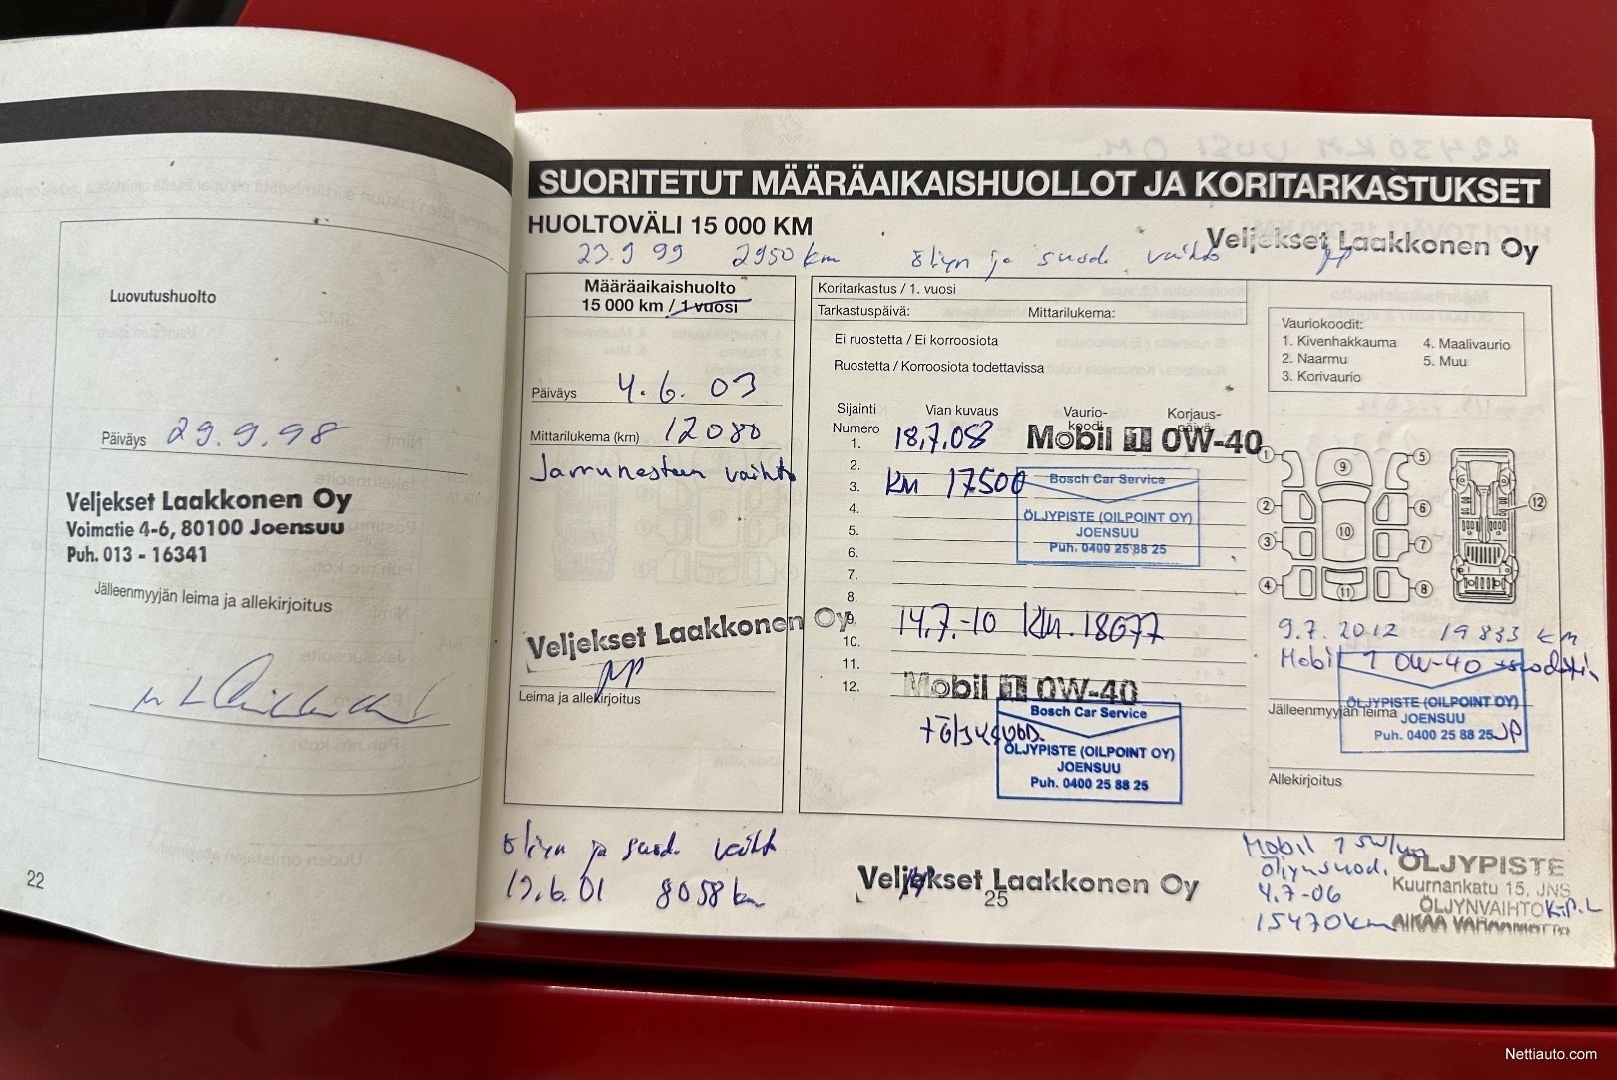 Luovutushuolto
Päiväys 29.9.98
Veljekset Laakkonen Oy
Voimatie 4-6, 80100 Joensuu
Puh. 013 - 16341
Jälleenmyyjän leima ja allekirjoitus
22
SUORITETUT MÄÄRÄAIKAISHUOLLOT JA KORITARKASTUKSET
HUOLTOVÄLI 15 000 KM
23.9 99 2950 km öliyn ja suod. vaihto
Veljekset Laakkonen Oy
Määräaikaishuolto
15 000 km / 1 vuosi
Päiväys 4.6.03
Mittarilukema (km) 12080
Jarrunesteen vaihto
Veljekset Laakkonen Oy
Leima ja allekirjoitus
Koritarkastus / 1. vuosi
Tarkastuspäivä: Mittarilukema:
Ei ruostetta / Ei korroosiota
Ruostetta / Korroosiota todettavissa
Sijainti Vian kuvaus Vaurio- Korjaus-
Numero koodi päivä
1. 18.7.08 Mobil 1 0W-40
2.
3. km 17500
Bosch Car Service
4.
ÖLJYPISTE (OILPOINT OY)
5.
JOENSUU
6.
Puh. 0400 25 88 25
7.
8.
9. 14.7.-10 km. 18677
10.
11.
12. Mobil 1 0W-40
Bosch Car Service
ÖLJYPISTE (OILPOINT OY)
JOENSUU
Puh. 0400 25 88 25
Vauriokoodit:
1. Kivenhakkauma 4. Maalivaurio
2. Naarmu 5. Muu
3. Korivaurio
1 2 3 4 5 6 7 8 9 10 11 12
9.7.2012 19833 km
Mobil 1 0W-40
ÖLJYPISTE (OILPOINT OY)
Jälleenmyyjän leima
JOENSUU
Puh. 0400 25 88 25 JP
Allekirjoitus
öliyn ja suod. vaihto
19.6.01 8058 km
Veljekset Laakkonen Oy
25
Mobil 1
öljynsuod.
4.7-06
15470km
ÖLJYPISTE
Kuurnankatu 15, JNS
ÖLJYNVAIHTO
Nettiauto.com